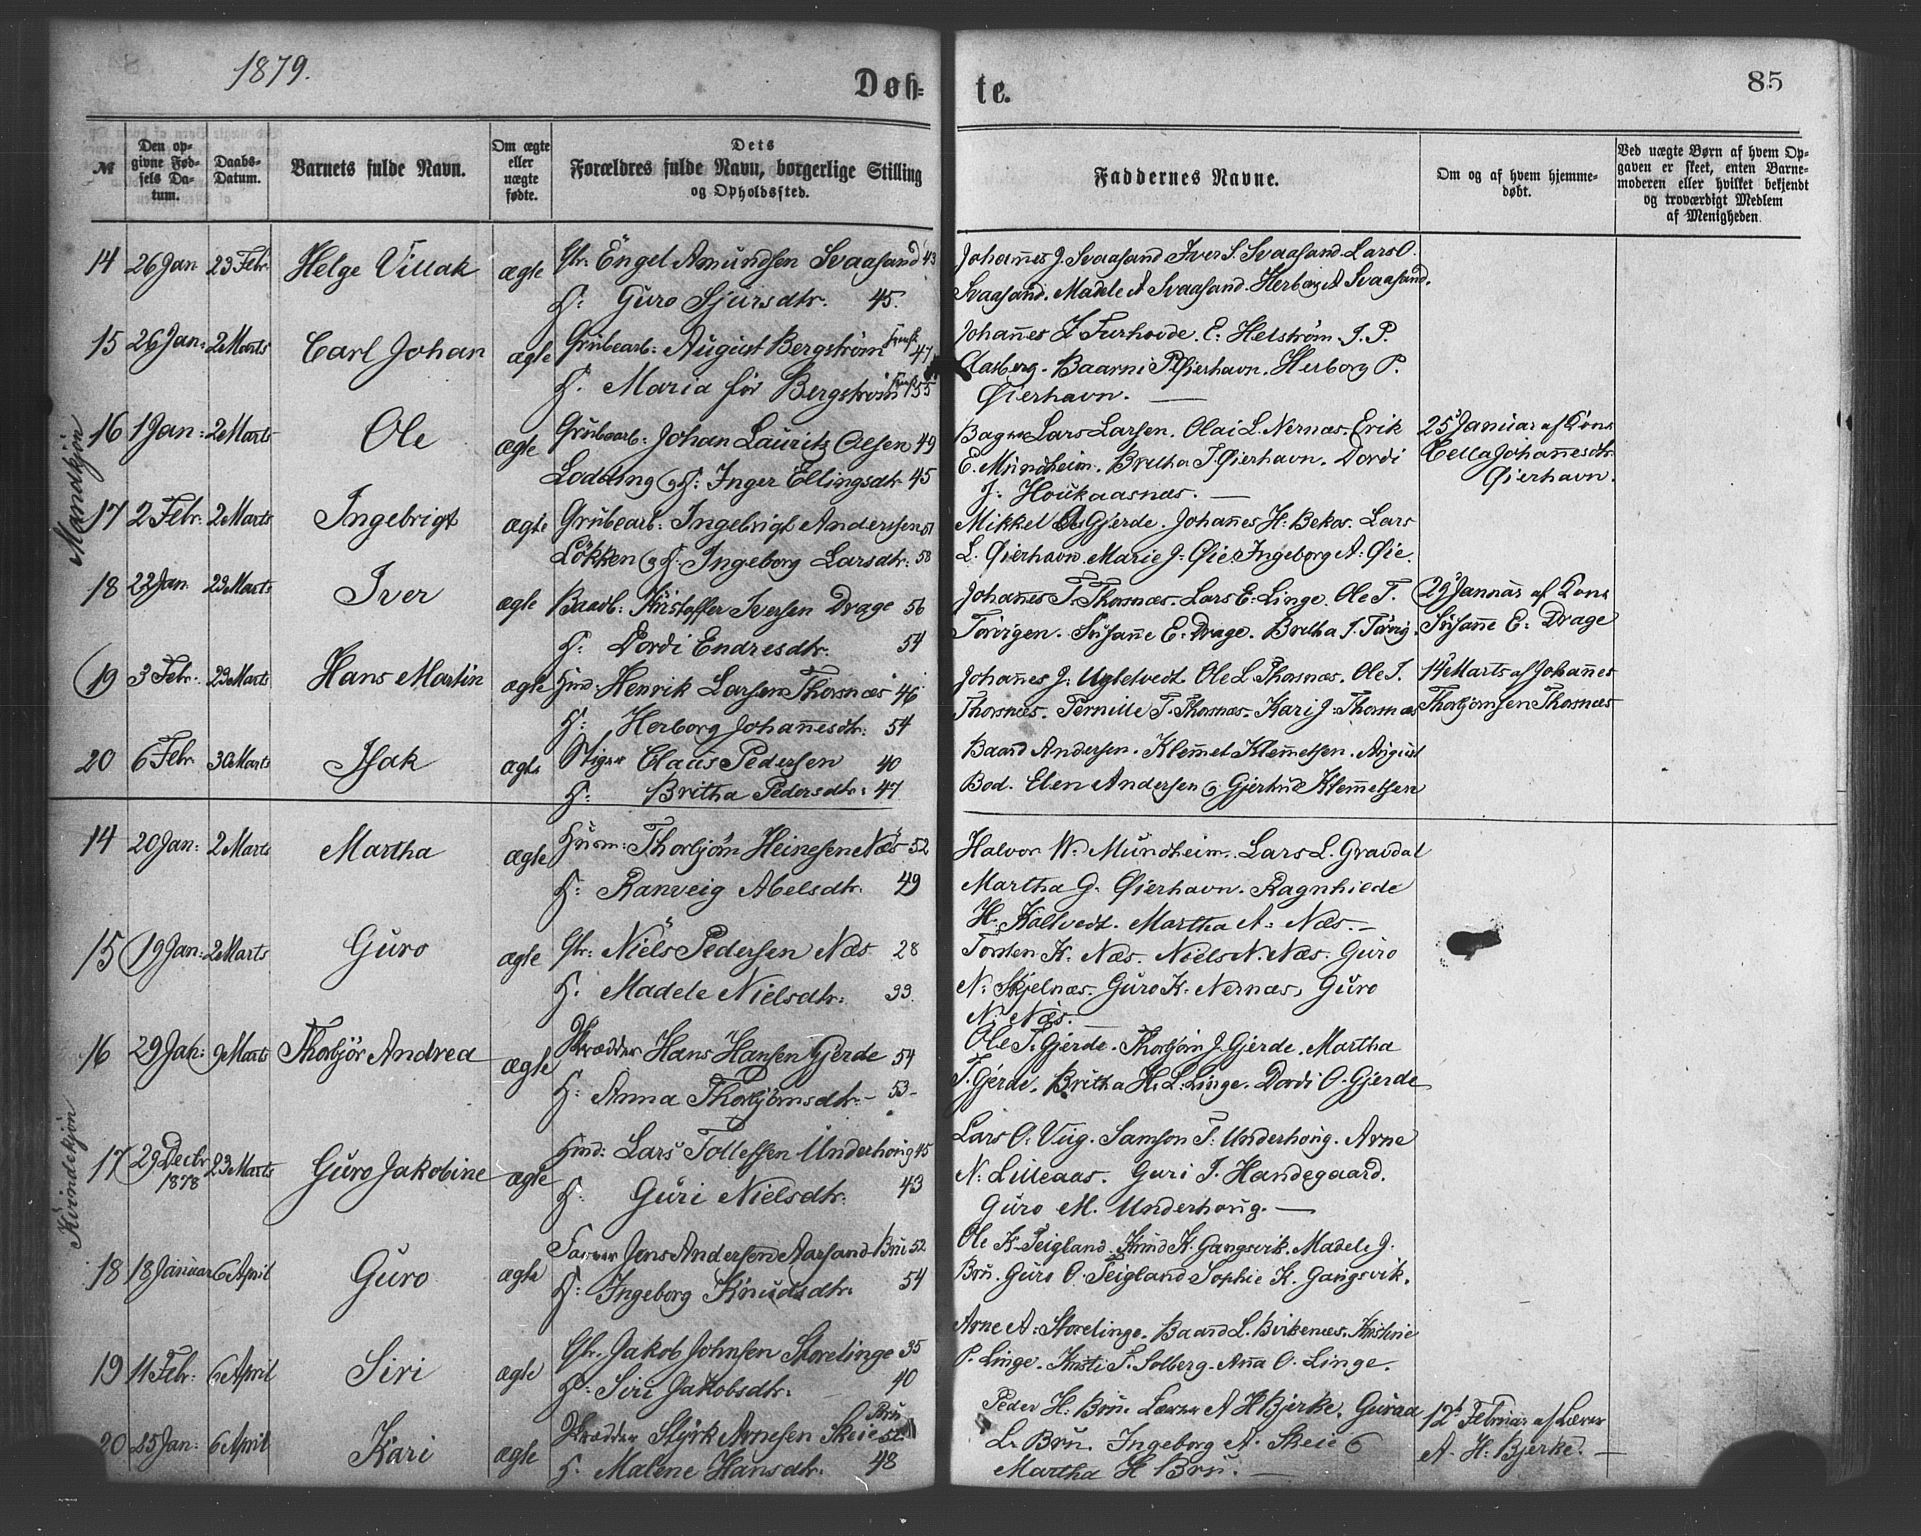 1879.
Døb=
te.
85
№
Den op-
givne Fød-
sels Da-
tum.
Daabs-
Datum.
Barnets fulde Navn.
Om ægte
eller
uægte
fødte.
Dets
Forældres fulde Navn, borgerlige Stilling
og Opholdssted.
Faddernes Navne.
Om og af hvem hjemme-
døbt.
Ved uægte Børn af hvem Op-
gaven er skeet, enten Barne-
moderen eller hvilket bekjendt
og troværdigt Medlem
af Menigheden.
Mandkjøn
14 26 Jan 23 Febr Helge Villak ægte Gbr: Engel Amundsen Svaasand 43
H: Guro Sjursdtr. 45.
Johannes J. Svaasand Iver S. Svaasand Lars O.
Svaasand. Madele A Svaasand. Herborg A Svaasand.
15 26 Jan: 2 Marts Carl Johan ægte Grubearb: August Bergstrøm 47
H. Maria før Bergstrøm 55
Johannes L Furhovde. E. Helstrøm. I. P.
Aasberg. Baarni P. Øierhavn. Herborg P.
Øierhavn. —
16 1 Jan: 2 Marts Ole ægte Grubearb: Johan Lauritz Olsen 49
Lodding og H: Inger Ellingsdtr 45
Lars Larsen. Olai L. Nernæs. Erik
E. Mundheim. Britha T. Øierhavn. Dordi
J: Houkaasnæs. —
25 Januar af Kone
Cella Johannesdtr
Øierhavn.
17 2 Febr: 2 Marts Ingebrigt ægte Grubearb: Ingebrigt Andersen 51
Løkken og H. Ingeborg Larsdtr: 58
Mikkel Gjerde. Johannes H. Bekos. Lars
L. Øierhavn. Marie J. Øie. Ingeborg A. Øie.
18 22 Jan 23 Marts Iver ægte Kristoffer Iversen Drage 56
H: Dordi Endresdtr. 54
Johannes T. Thorsnæs. Lars E. Linge. Ole T.
Tørvigen. Susanne E. Drage. Britha I. Tørvig.
29 Januar af Kone
Susanne E. Drage
19 3 Febr. 23 Marts Hans Martin ægte Hmd: Henrik Larsen Thorsnæs 46
H: Herborg Johannesdtr: 54
Johannes J. Ugletvedt Ole L. Thorsnæs. Ole T.
Thorsnæs. Pernille T. Thorsnæs. Kari J. Thorsnæs
14 Marts af Johannes
Thorbjørnsen Thorsnæs
20 6 Febr. 30 Marts Isak ægte Stiger Claus Pedersen 40
H: Britha Pedersdtr: 47
Baard Andersen. Klemet Klemetsen. August
Bod. Elen Andersen og Gjertrud Klemetsen
Kvindekjøn
14 20 Jan: 2 Marts Martha ægte Husm: Thorbjørn Heinesen Næs 52
H: Ranveig Abelsdtr. 49
Halvor W. Mundheim. Lars L. Gravdal
Martha G. Øierhavn. Ragnhilde
H. Kaltvedt. Martha A. Næs. —
15 19 Jan: 2 Marts Guro ægte Gbr: Niels Pedersen Næs 28
H. Madele Nielsdtr: 33.
Torsten K. Næs. Niels N. Næs. Guro
N. Skjelnæs. Guro K. Nernæs, Guro
N. Næs. —
16 29 Jan: 9 Marts Thorbjør Andrea ægte Skrædder Hans Hansen Gjerde 54
H: Anna Thorbjørnsdtr — 53 —
Ole T. Gjerde. Thorbjørn J. Gjerde. Martha
T. Gjerde. Britha H. L. Linge. Dordi O. Gjerde
17 29 Decbr 1878 23 Marts Guro Jakobine ægte Hmd: Lars Tollefsen Underhoug 45
H: Guri Nielsdtr. 43
Lars O. Vug. Samson T. Underhoug. Arne
N. Lilleaas. Guri T. Handegaard.
Guro M. Underhoug. —
18 18 Januar 6 April Guro ægte Farver Jens Andersen Aarsand Bru 52
H: Ingeborg Knudsdtr. 54
Ole K. Teigland. Knud K. Gangsvik. Madele J.
Bru. Guro O. Teigland Sophie K. Gangsvik.
19 11 Febr: 6 April Siri ægte Gbr. Jakob Johnsen Storelinge 35
H: Siri Jakobsdtr. 40
Arne A. Storelinge. Baard L. Birkenæs. Kristine
P. Linge. Kristi T. Solberg. Anna O. Linge.
20 25 Jan: 6 April Kari ægte Skrædder Styrk Arnesen Skeie Bru
H: Malene Hansdtr. 48
Peder H. Bru. Lærer A H Bjerke. Guraa
L. Bru. Ingeborg A. Skeie
Martha H Bru. —
12 Februar af Lærer
A. H. Bjerke. —